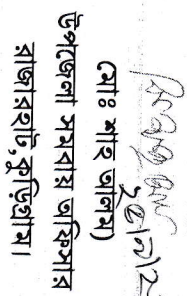 (মোঃ শাহ আলম)
উপজেলা সমবায় অফিসার
রাজারহাট, কুড়িগ্রাম।